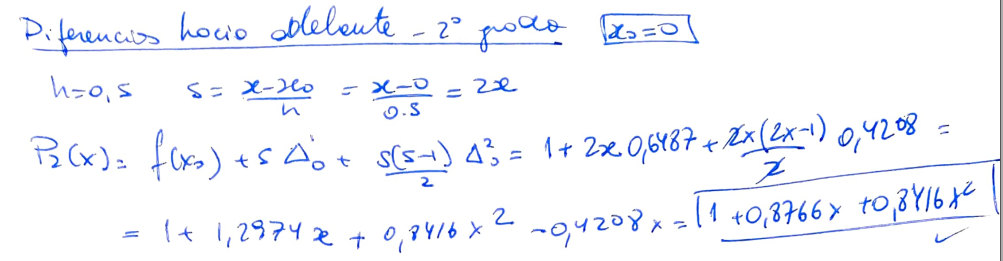 Diferencias hacia adelante - 2º grado x₀=0
h=0,5 s = x-x₀/h = x-0/0.5 = 2x
P₂(x) = f(x₀) + s Δ¹₀ + s(s-1)/2 Δ²₀ = 1 + 2x 0,6487 + 2x(2x-1)/2 0,4208 =
= 1 + 1,2974 x + 0,8416 x² - 0,4208 x = 1 + 0,8766 x + 0,8416 x²